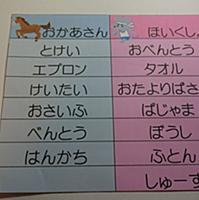 おかあさん ほいくし
とけい おべんとう
エプロン タオル
けいたい おたよりばさ
おさいふ ぱじゃま
べんとう ぼうし
はんかち ふとん
しゅーず